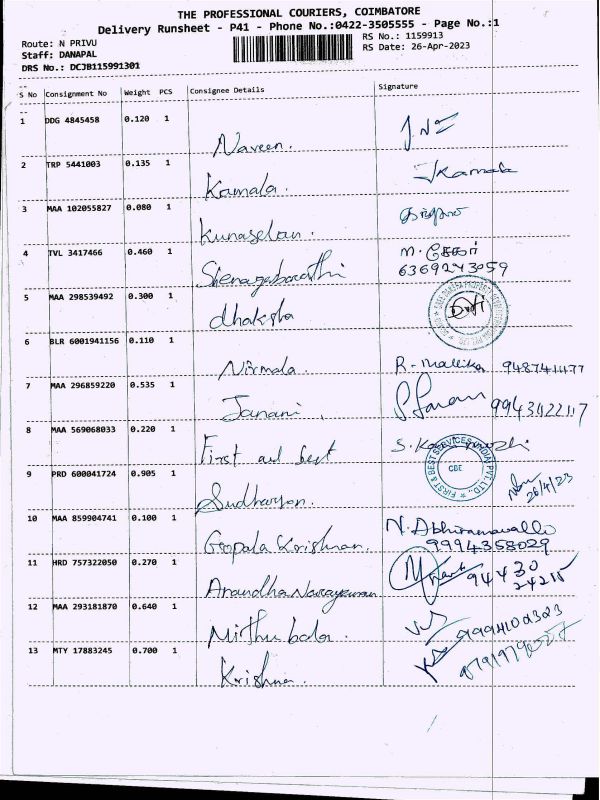 THE PROFESSIONAL COURIERS, COIMBATORE
Delivery Runsheet - P41 - Phone No.:0422-3505555 - Page No.:1
Route: N PRIVU
Staff: DANAPAL
DRS No.: DCJB115991301
RS No.: 1159913
RS Date: 26-Apr-2023
S No Consignment No Weight PCS Consignee Details Signature
1 DDG 4845458 0.120 1 Naveen.
2 TRP 5441003 0.135 1 Kamala. Kamala
3 MAA 102055827 0.080 1 Kunaselan.
4 TVL 3417466 0.460 1
6369243059
5 MAA 298539492 0.300 1 dhaksha
6 BLR 6001941156 0.110 1 Nirmala. R. Mallika
7 MAA 296859220 0.535 1 Janani.
8 MAA 569068033 0.220 1 First and best S.
FIRST & BEST SERVICES INDIA PVT. LTD.,
CBE
9 PRD 600041724 0.905 1 26/4/23
10 MAA 859904741 0.100 1 Goopala Krishnan. N. Abhiramavalli
9994358029
11 HRD 757322050 0.270 1 Anandha Narayanan 94430
24215
12 MAA 293181870 0.640 1 Mithu bala.
13 MTY 17883245 0.700 1 Krishna.